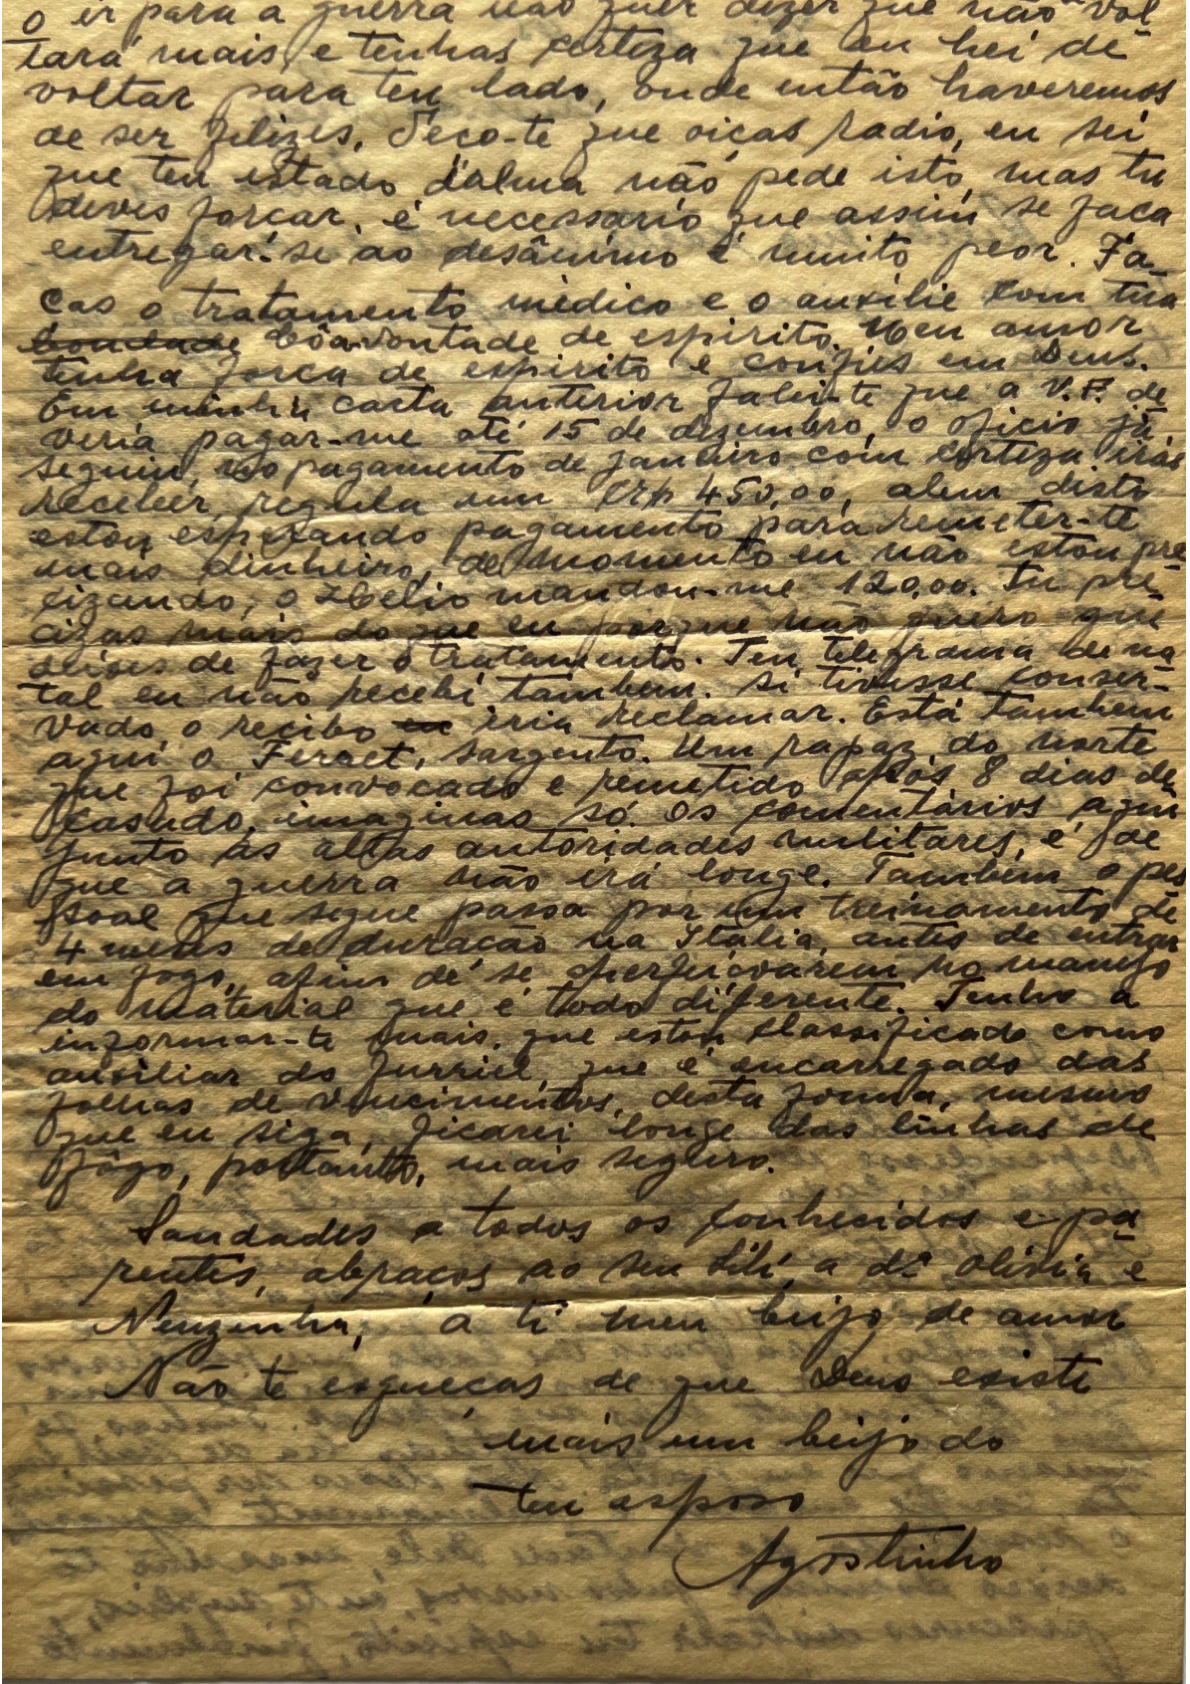 o ir para a guerra não quer dizer que não vol
tará mais e tenhas certeza que eu hei de
voltar para teu lado, onde então haveremos
de ser felizes. Peço-te que oiças radio, eu sei
que teu estado dálma não pede isto, mas tu
deves forçar, é necessário que assim se faça
entregar-se ao desânimo é muito peor. Fa-
ças o tratamento médico e o auxilie com tua
bondade bôa vontade de espirito. Meu amor
tenha força de espirito e confies em Deus.
Em minha carta anterior falei-te que a V.F. de
veria pagar-me até 15 de dezembro, o oficio já
seguiu, no pagamento de janeiro com certeza irás
receber, regula um Cr$ 450,00, alem disto
estou esperando pagamento para remeter-te
mais dinheiro, de momento eu não estou pre
cizando, o Helio mandou-me 120,00. Tu pre-
cizas mais do que eu porque não quero que
deixes de fazer o tratamento. Teu telegrama de na
tal eu não recebi tambem. Si tivesse conser-
vado o recibo eu iria reclamar. Está tambem
aqui o Ferret, sargento. Um rapaz do norte
que foi convocado e remetido após 8 dias de
casado, imaginas só. Os comentários aqui
junto ás altas autoridades militares, é de
que a guerra não irá longe. Também o pes
soal que segue passa por um treinamento de
4 meses de duração na Italia, antes de entrar
em fogo, afim de se aperfeiçoarem no manejo
do material que é todo diferente. Tenho a
informar-te mais, que estou classificado como
auxiliar do furriel, que é encarregado das
folhas de vencimentos, desta forma, mesmo
que eu siga, ficarei longe das linhas de
fôgo, portanto, mais seguro.
Saudades a todos os conhecidos e pa
rentes, abraços ao seu Lili, a dª Olivia e
Neuzinha, a ti meu beijo de amor
Não te esqueças de que Deus existe
mais um beijo do
teu esposo
Agostinho